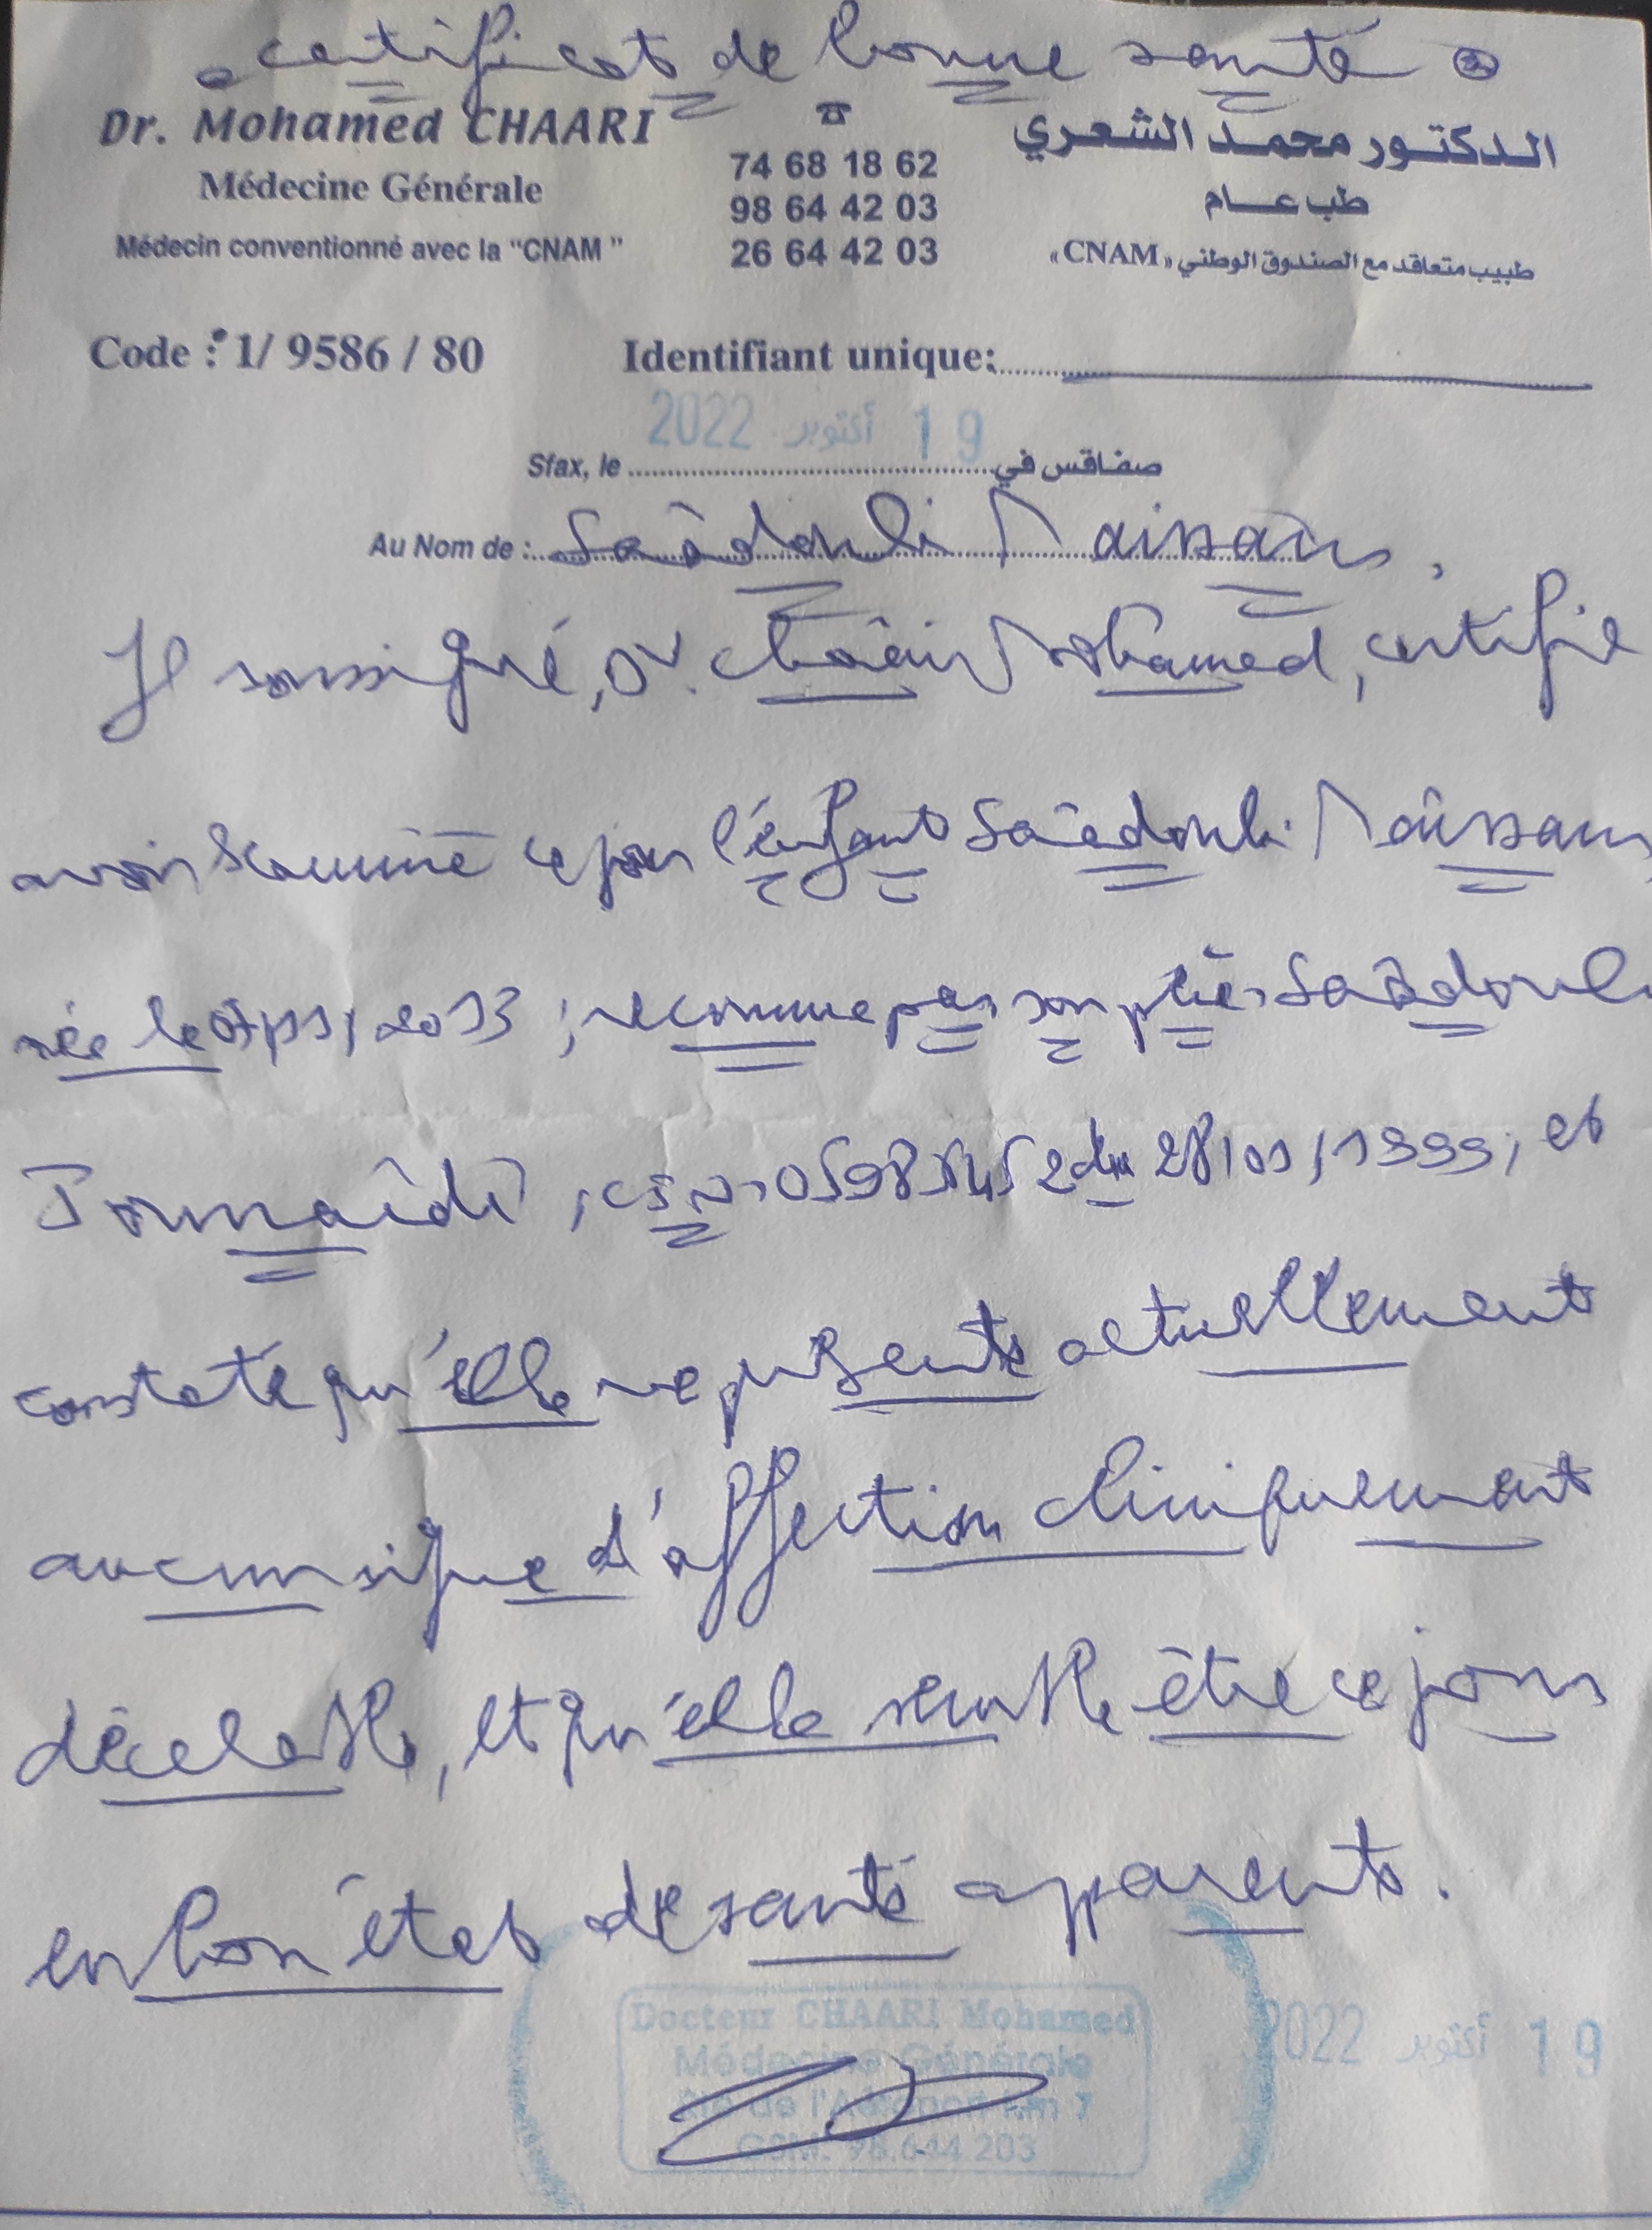 certificat de bonne santé
Dr. Mohamed CHAARI
Médecine Générale
Médecin conventionné avec la "CNAM"
☎
74 68 18 62
98 64 42 03
26 64 42 03
الدكتور محمد الشعري
طب عام
طبيب متعاقد مع الصندوق الوطني «CNAM»
Code : 1/ 9586 / 80
Identifiant unique:
19 أكتوبر 2022
Sfax, le صفاقس في
Au Nom de : Saâdouli Maissan
Je soussigné, Dr. Chaâri Mohamed, certifie
avoir examiné ce jour l'enfant Saâdouli Maissan
née le /11/2013 ; reconnue par son père Saâdouli
, du 28/01/1999, et
constaté qu'elle ne présente actuellement
aucun signe d'affection cliniquement
décelable, et qu'elle semble être ce jour
en bon état de santé apparente.
Docteur CHAARI Mohamed
Médecine Générale
Rte de l'Aéroport km 7
GSM: 98.644.203
19 أكتوبر 2022